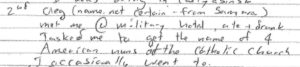 2nd Oleg (name not certain - from Samara)
met me @ military hotel ate & drank
Tasked me to get the name of 4
American nuns at the Catholic Church
I occasionally went to.